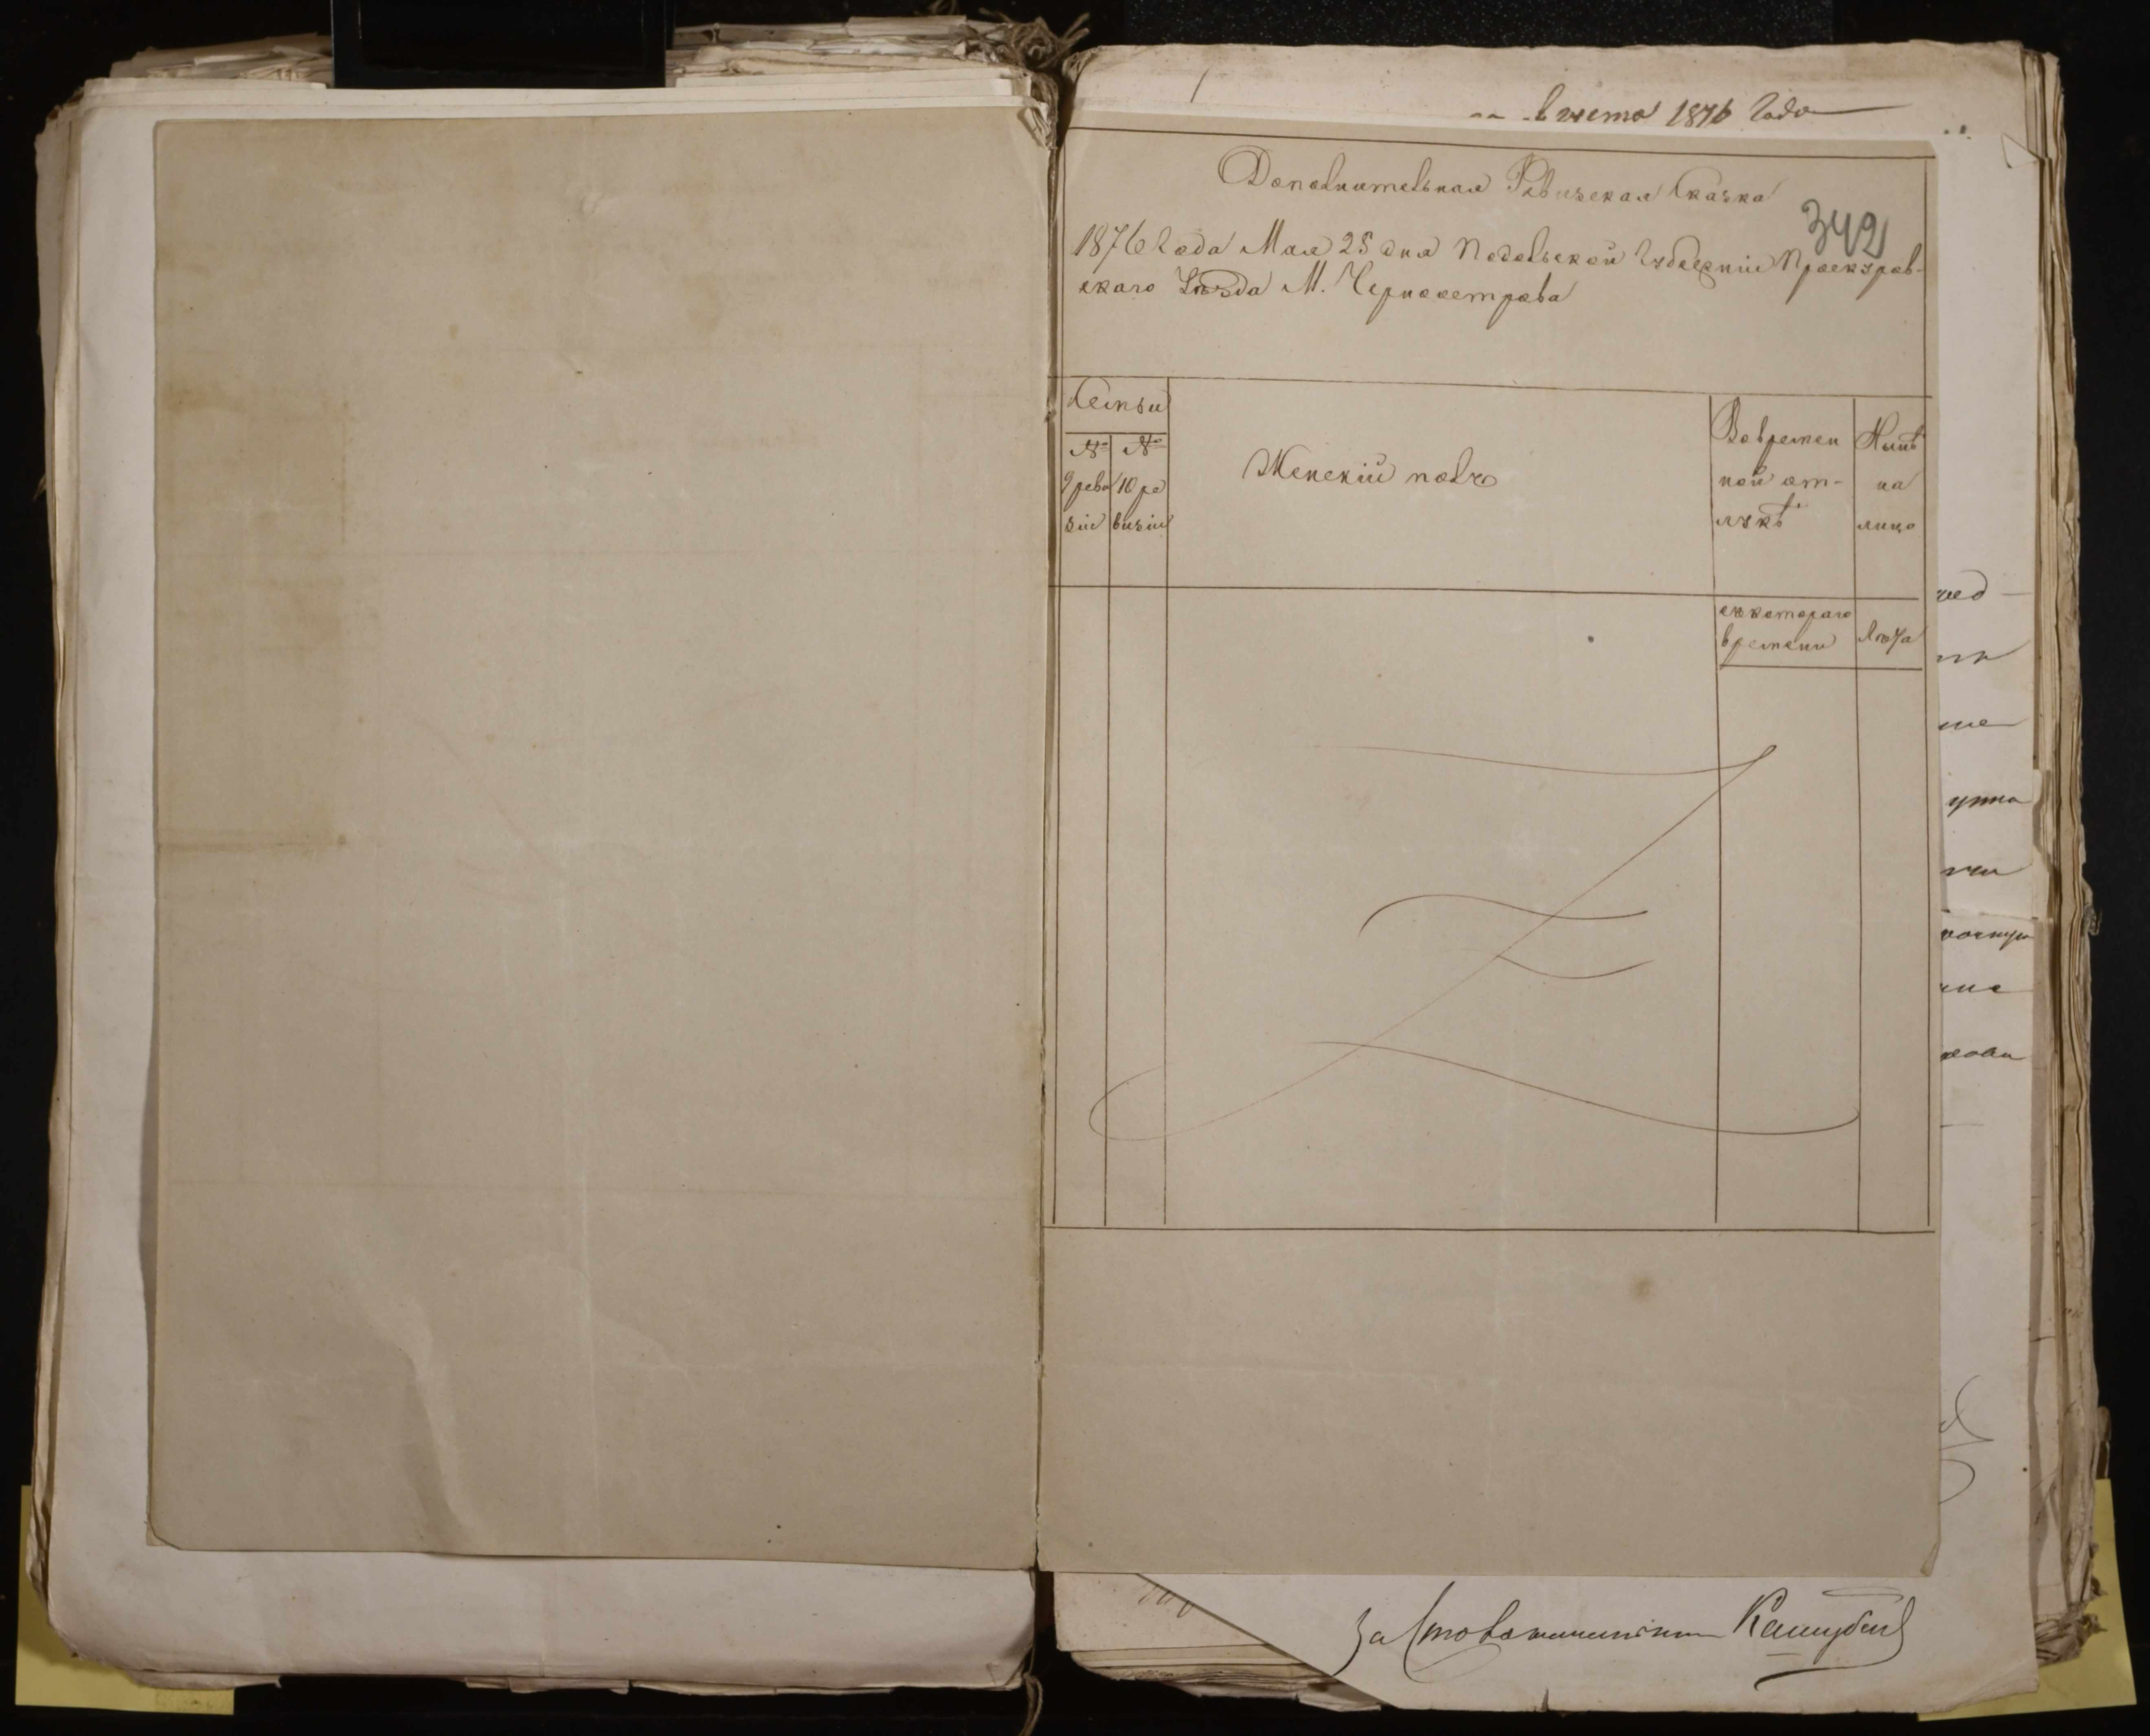 1876 года
Дополнительная Ревизская Сказка
342
1876 года Мая 25 дня Подольской Губерніи Проскуров-
скаго Уѣзда М. Чорноострова
Семьи
№ № 
9 реви 10 ре
зіи визіи
Женскій полъ
Вовремен
ной от-
лучкѣ
Нынѣ
на
лицо
съ котораго
времени
Лѣта
За